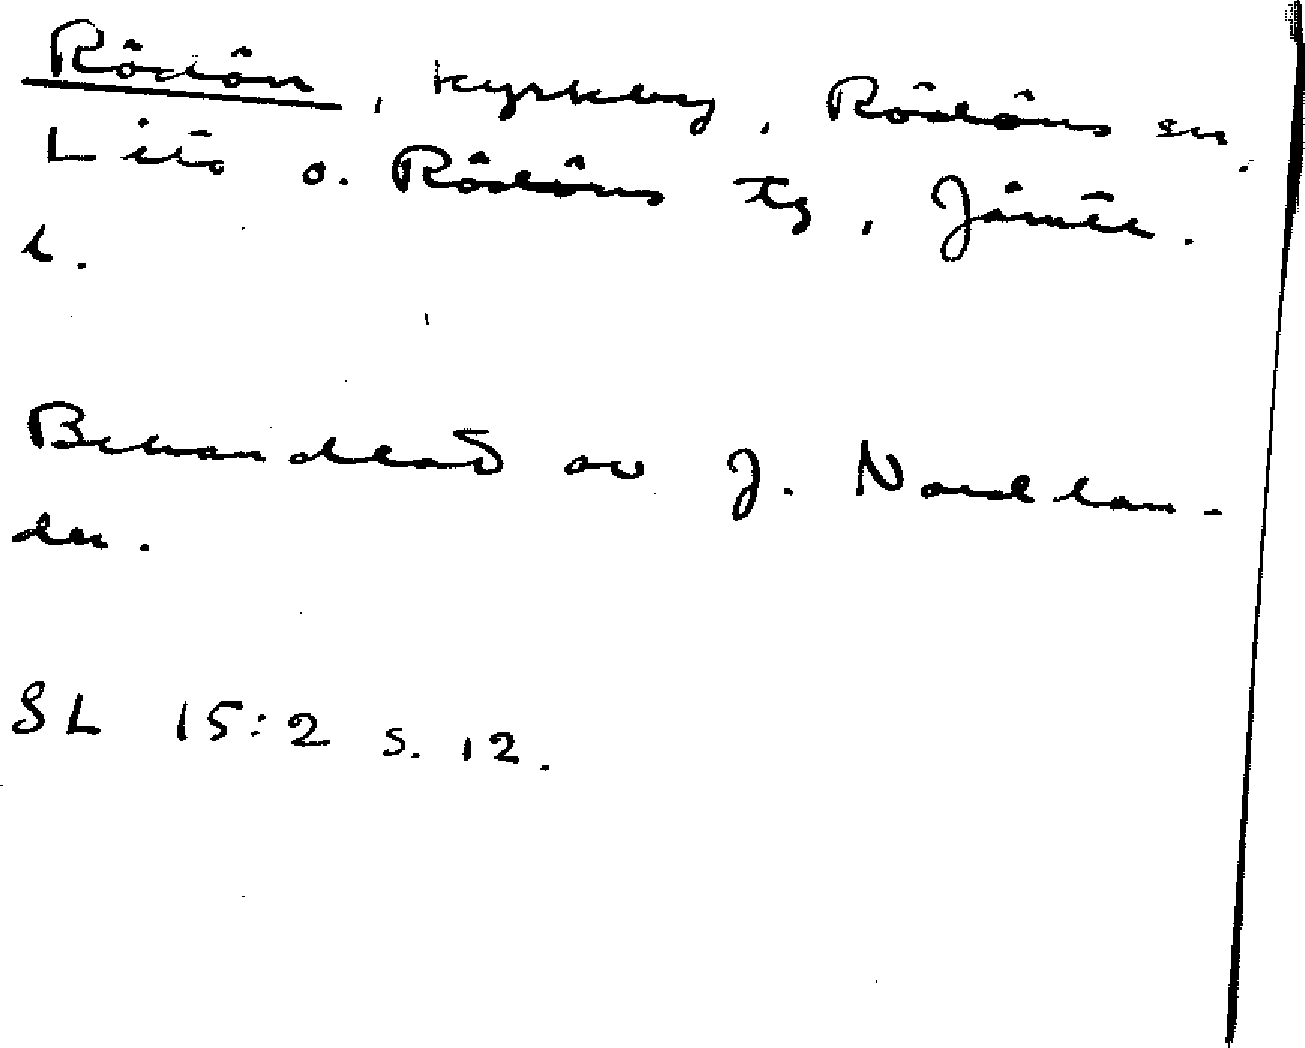 Rödön, kyrkby, Rödöns sn,
Lits o. Rödöns tg, Jämtl.
l.
Behandlat av J. Nordlan-
der.
SL 15:2 s. 12.